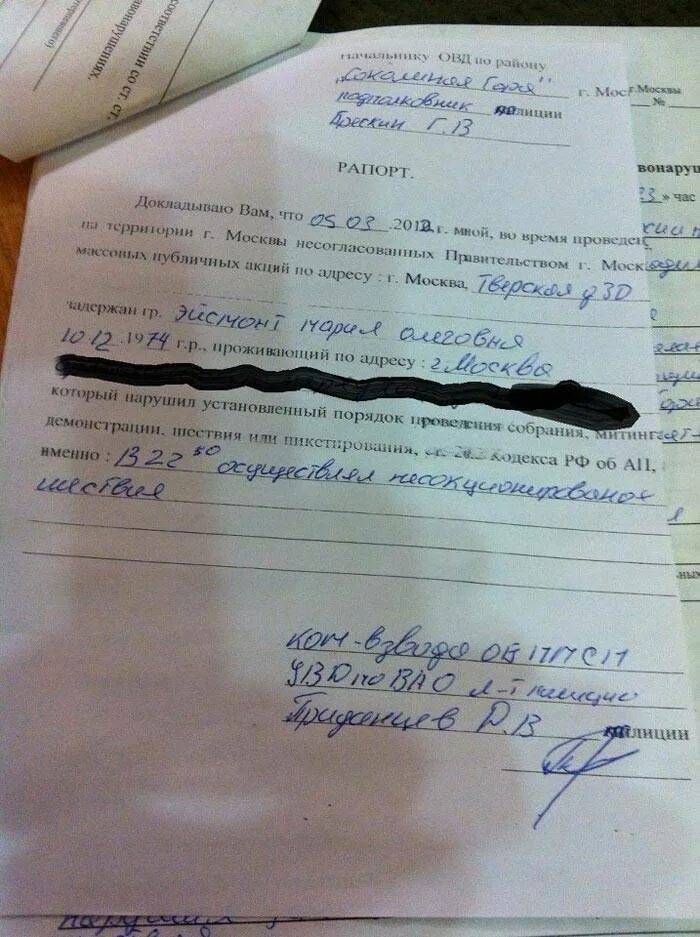 соответствии со ст. ст.
вонарушениях.
Начальнику ОВД по району
„Соколиная Гора" г. Мос
подполковник полиции
Брескин Г.В
г. Москвы
№
РАПОРТ.
вонаруш
23 » час
Докладываю Вам, что 05 03 .2012 г. мной, во время проведен
на территории г. Москвы несогласованных Правительством г. Моск
массовых публичных акций по адресу : г. Москва, Тверская д 30
задержан гр. Эйсмонт Мария Олеговна
10.12.1974 г.р., проживающий по адресу : г. Москва
который нарушил установленный порядок проведения собрания, митинга
демонстрации, шествия или пикетирования, ст. 20.2 Кодекса РФ об АП, а
именно : В 22 50 осуществлял несокционированоя
шествия
ных
ком-взвода ОБ ППСП
УВД по ВАО л-т полиции
Приданцев Д.В полиции